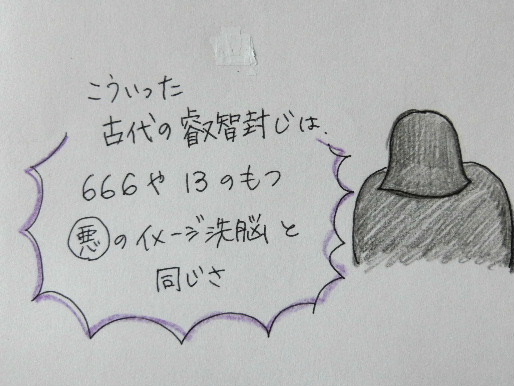 こういった
古代の叡智封じは、
666や13のもつ
悪のイメージ洗脳と
同じさ